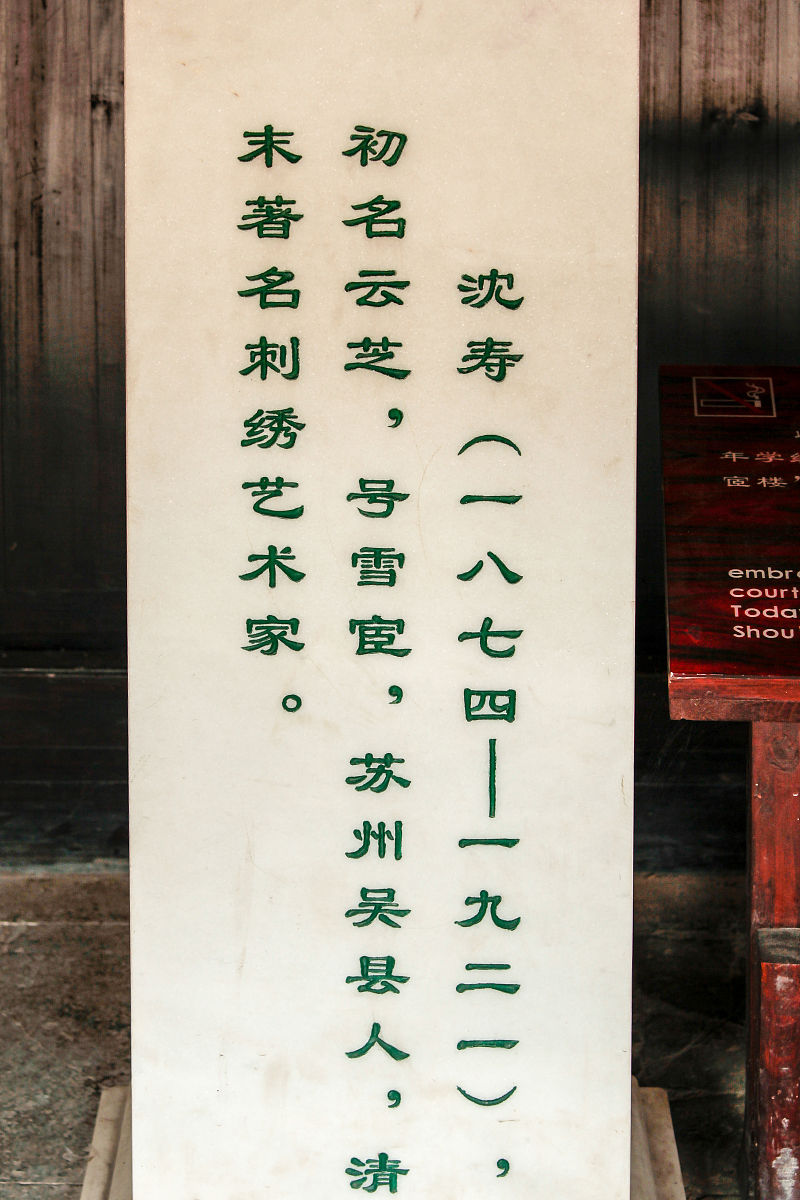 沈寿（一八七四—一九二一），
初名云芝，号雪宧，苏州吴县人，清
末著名刺绣艺术家。
年学
宧楼，
court
Toda
Shou